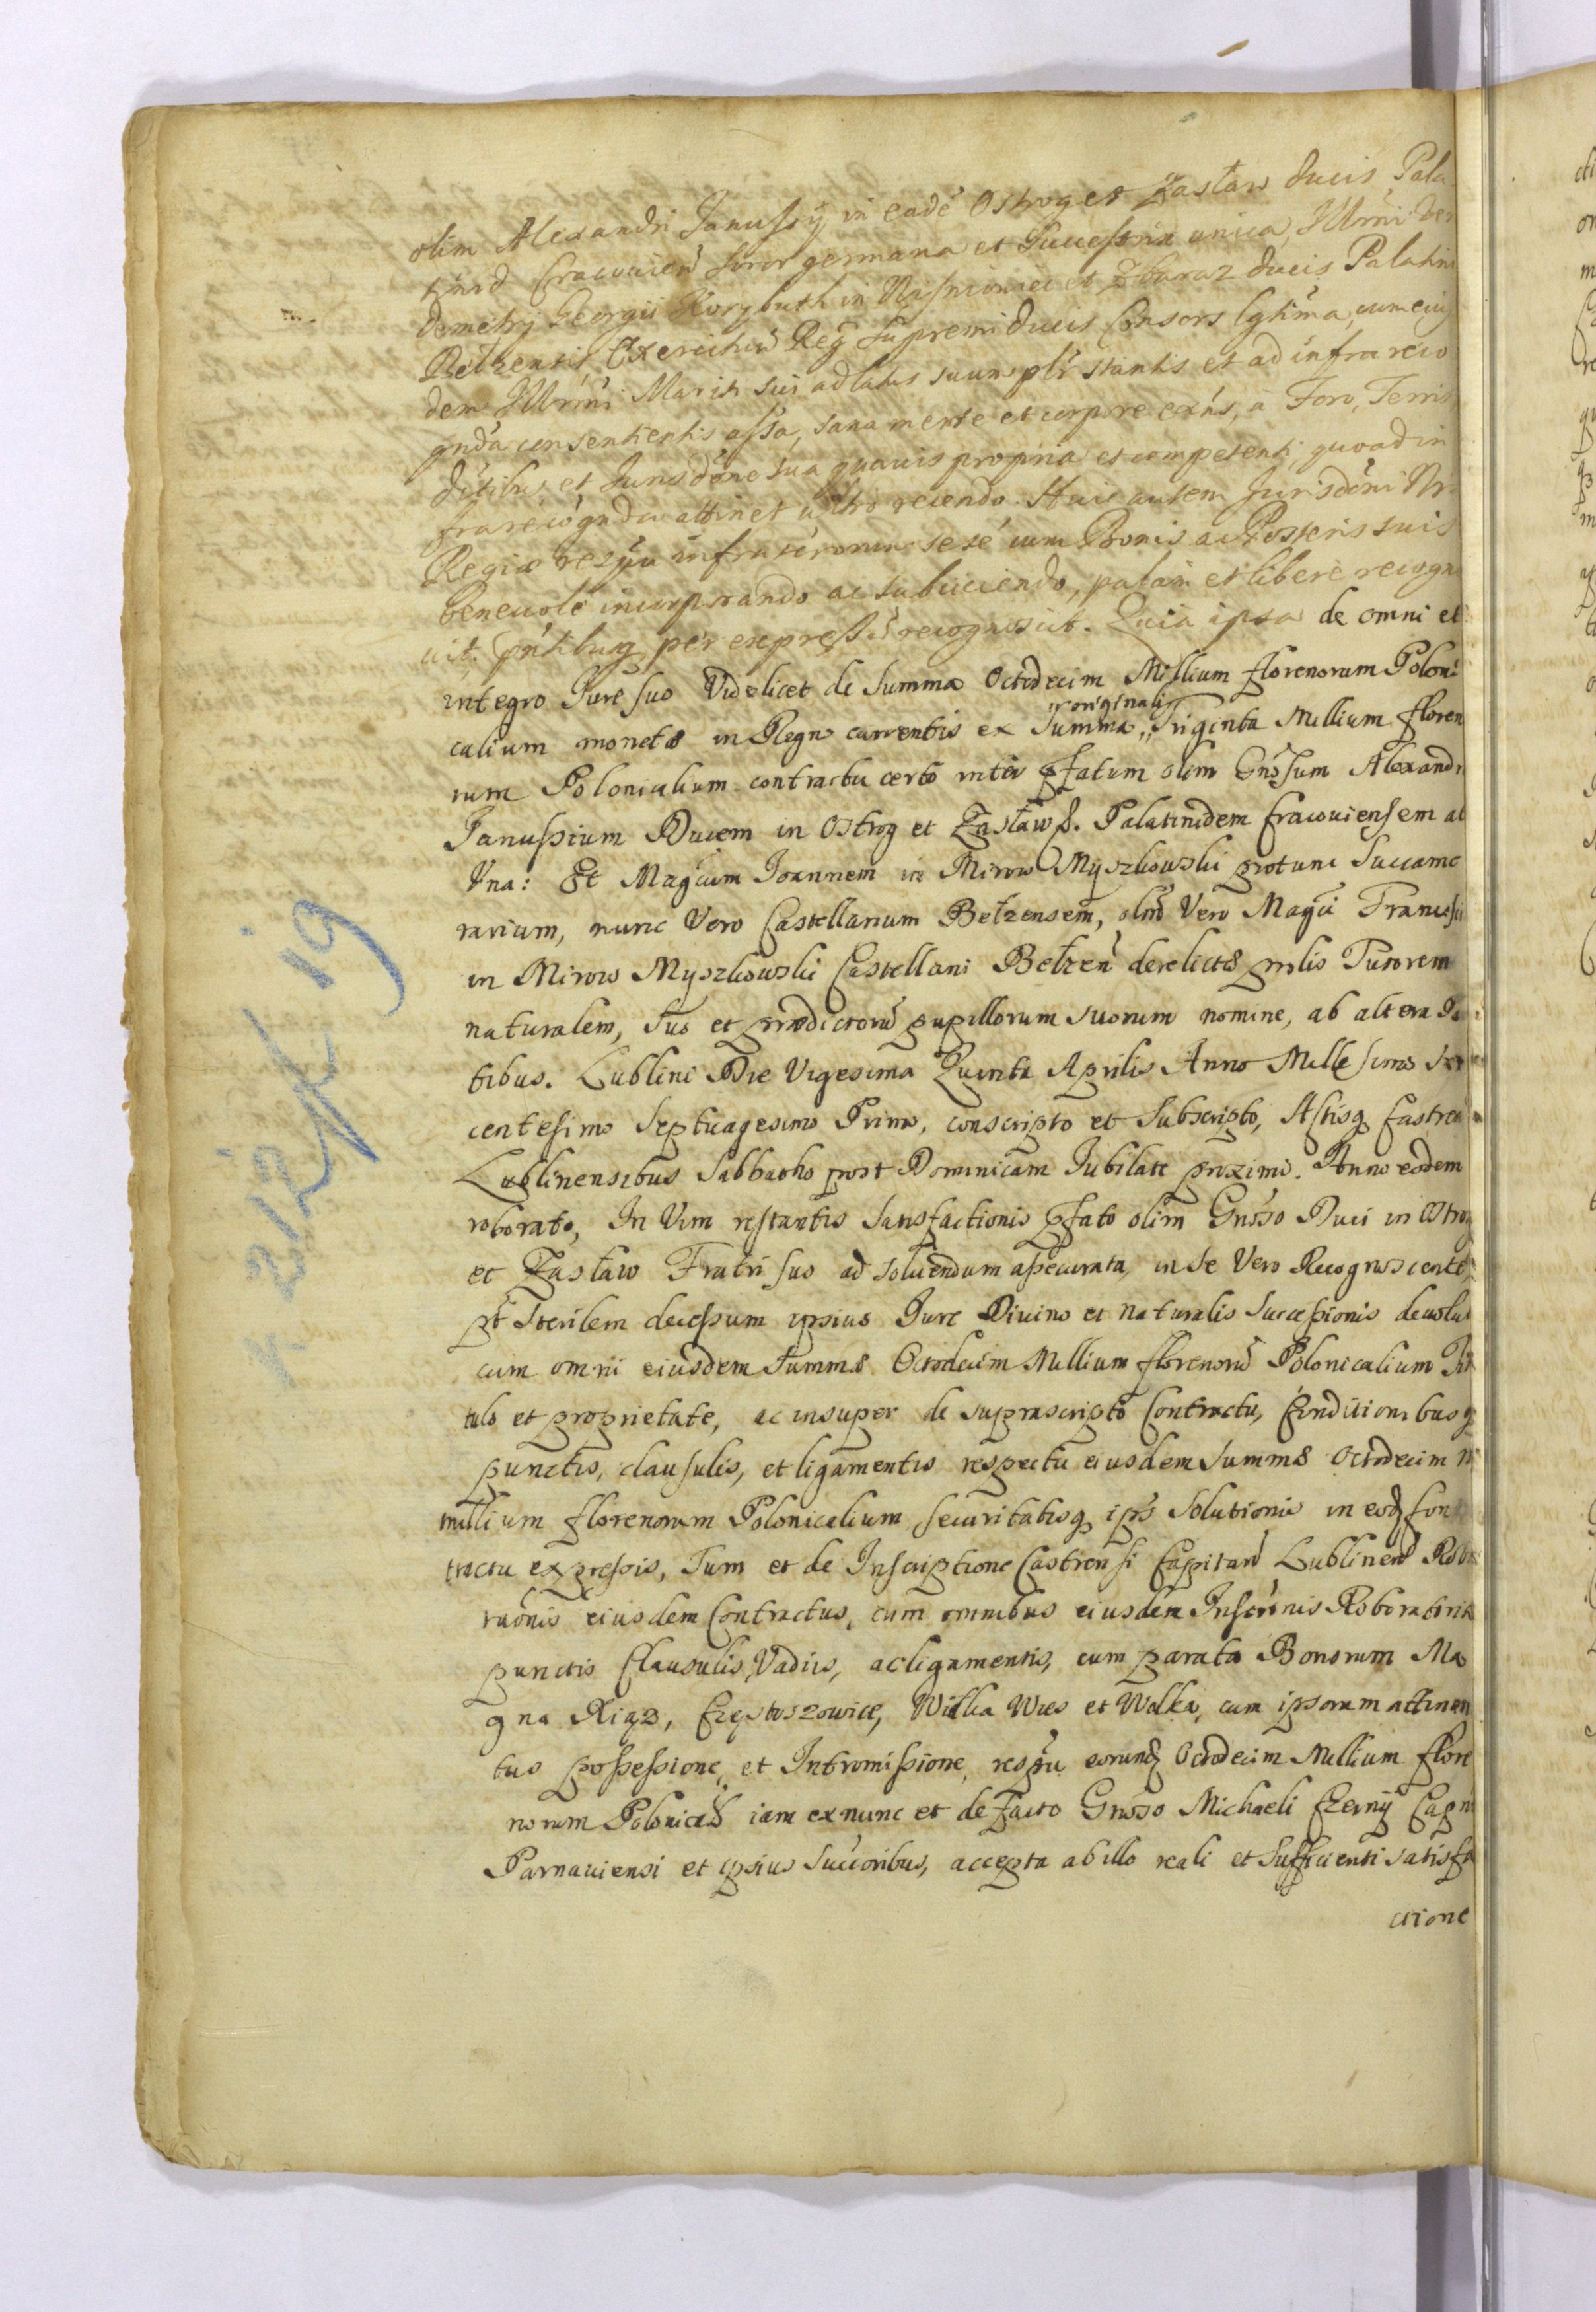 olim Alexandri Janussÿ in eadē Ostrog et Zasław Ducis, Pala
tinid Cracovien̄ soror germana et Successrix unica, Illrmi Dni
Demetrÿ Georgii Korybuth in Wisniowiec et Zbaraz Ducis Palatini
Belzensis Exercituū Reg̃ Supremi Ducis Consors lgtīma, cum eius
dem Illrmi Mariti sui ad latus suum plr̃ stantis et ad infra reco
gnd̄a consentientis assa, sana mente et corpore exn̄s, a Foro, Terris
ditibus et Jurisdōne sua quavis propria et competenti quoad in
fra recōgnda attinet ultro recendo. Huic autem Jurisdōni
Regiæ respu infrascr̄orum sese cum Bonis ac Posteris suis
benevole incorporando ac subiiciendo, palam et libere recogno
vit. pn̄tibusq per expressū recognoscit. Quia ipsa de omni et
integro Jure suo Videlicet de Summa Octodecim Millium florenorum Poloni
calium monetæ in Regno currentis ex Summa originali Triginta Millium floren
rum Polonicalium contractu certo inter pfatum olim Gnōsum Alexandr
Janussium Ducem in Ostrog et Zasław p. Palatinidem Cracoviensem ab
Vna: Et Magcum Joannem in Mirow Myszkowski protunc Succame
rarium, nunc Vero Castellanum Bełzensem, olim Vero Magci Francisci
in Mirow Myszkowski Castellani Bełzen̄ derelictæ prolis Tutorem
naturalem, suo et prædictorū pupillorum suorum nomine, ab altera Pa
tibus. Lublini Die Vigesima Quinta Aprilis Anno Millesimo Sex
centesimo Septuagesimo Primo, conscripto et Subscripto, Actisq Castren
Lublinensibus Sabbatho post Dominicam Jubilate proximo. Anno eodem
roborato, In Vim restantis Satisfactionis pfato olim Gnōso Duci in Ostrog
et Zasław Fratri suo ad solvendum assecurata, in se Vero Recognoscente
pt Sterilem decessum ipsius Jure Divino et naturalis Successionis devolut
cum omni eiusdem Summæ Octodecim Millium florenorū Polonicalium Ti
tulo et proprietate, ac insuper de suprascripto Contractu, Conditionibusq
punctis, clausulis, et ligamentis respectu eiusdem Summæ Octodecim M
millium florenorum Polonicalium Securitatisq ipś Solutionis in eodq Con
tractu expressis, Tum et de Inscriptione Castrensi Capitan̄ Lublinen̄ Robo
raōnis eiusdem Contractus, cum omnibus eiusdem Inscrōnis Roboratoria
punctis Clausulis, Vadiis, ac ligamentis, cum parata Bonorum Ma
gna Xiąz, Czeptoszowice, Wielka Wies et Wolka, cum ipsorum attinen
tiis possessione, et Intromissione, respu eorundq Octodecim Millium flore
norum Polonical iam ex nunc et de facto Gnōso Michaeli Czernÿ Capn
Parnaviensi et ipsius Succoribus, accepta ab illo reali et sufficienti satisfa
ctione